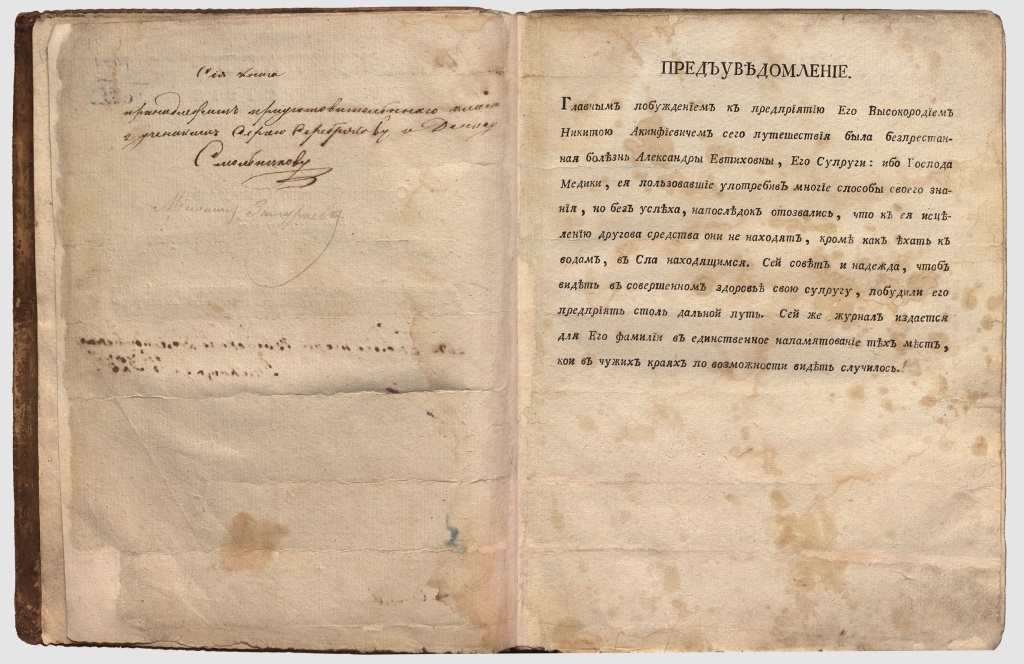 Сія книга
принадлежитъ приготовительнаго класса
ученикамъ
Смольникову
ПРЕДЪУВѢДОМЛЕНІЕ.
Главнымъ побужденіемъ къ предпріятію Его Высокородіемъ
Никитою Акинфіевичемъ сего путешествія была безпрестан-
ная болѣзнь Александры Евтиховны, Его Супруги: ибо Господа
Медики, ея пользовавшіе употребивъ многіе способы своего зна-
нія, но безъ успѣха, напослѣдокъ отозвались, что къ ея исцѣ-
ленію другова средства они не находятъ, кромѣ какъ ѣхать къ
водамъ, въ Спа находящимся. Сей совѣтъ и надежда, чтобъ
видѣть въ совершенномъ здоровьѣ свою супругу, побудили его
предпріять столь дальной путь. Сей же журналъ издается
для Его фамиліи въ единственное напамятованіе тѣхъ мѣстъ,
кои въ чужихъ краяхъ по возможности видѣть случилось.